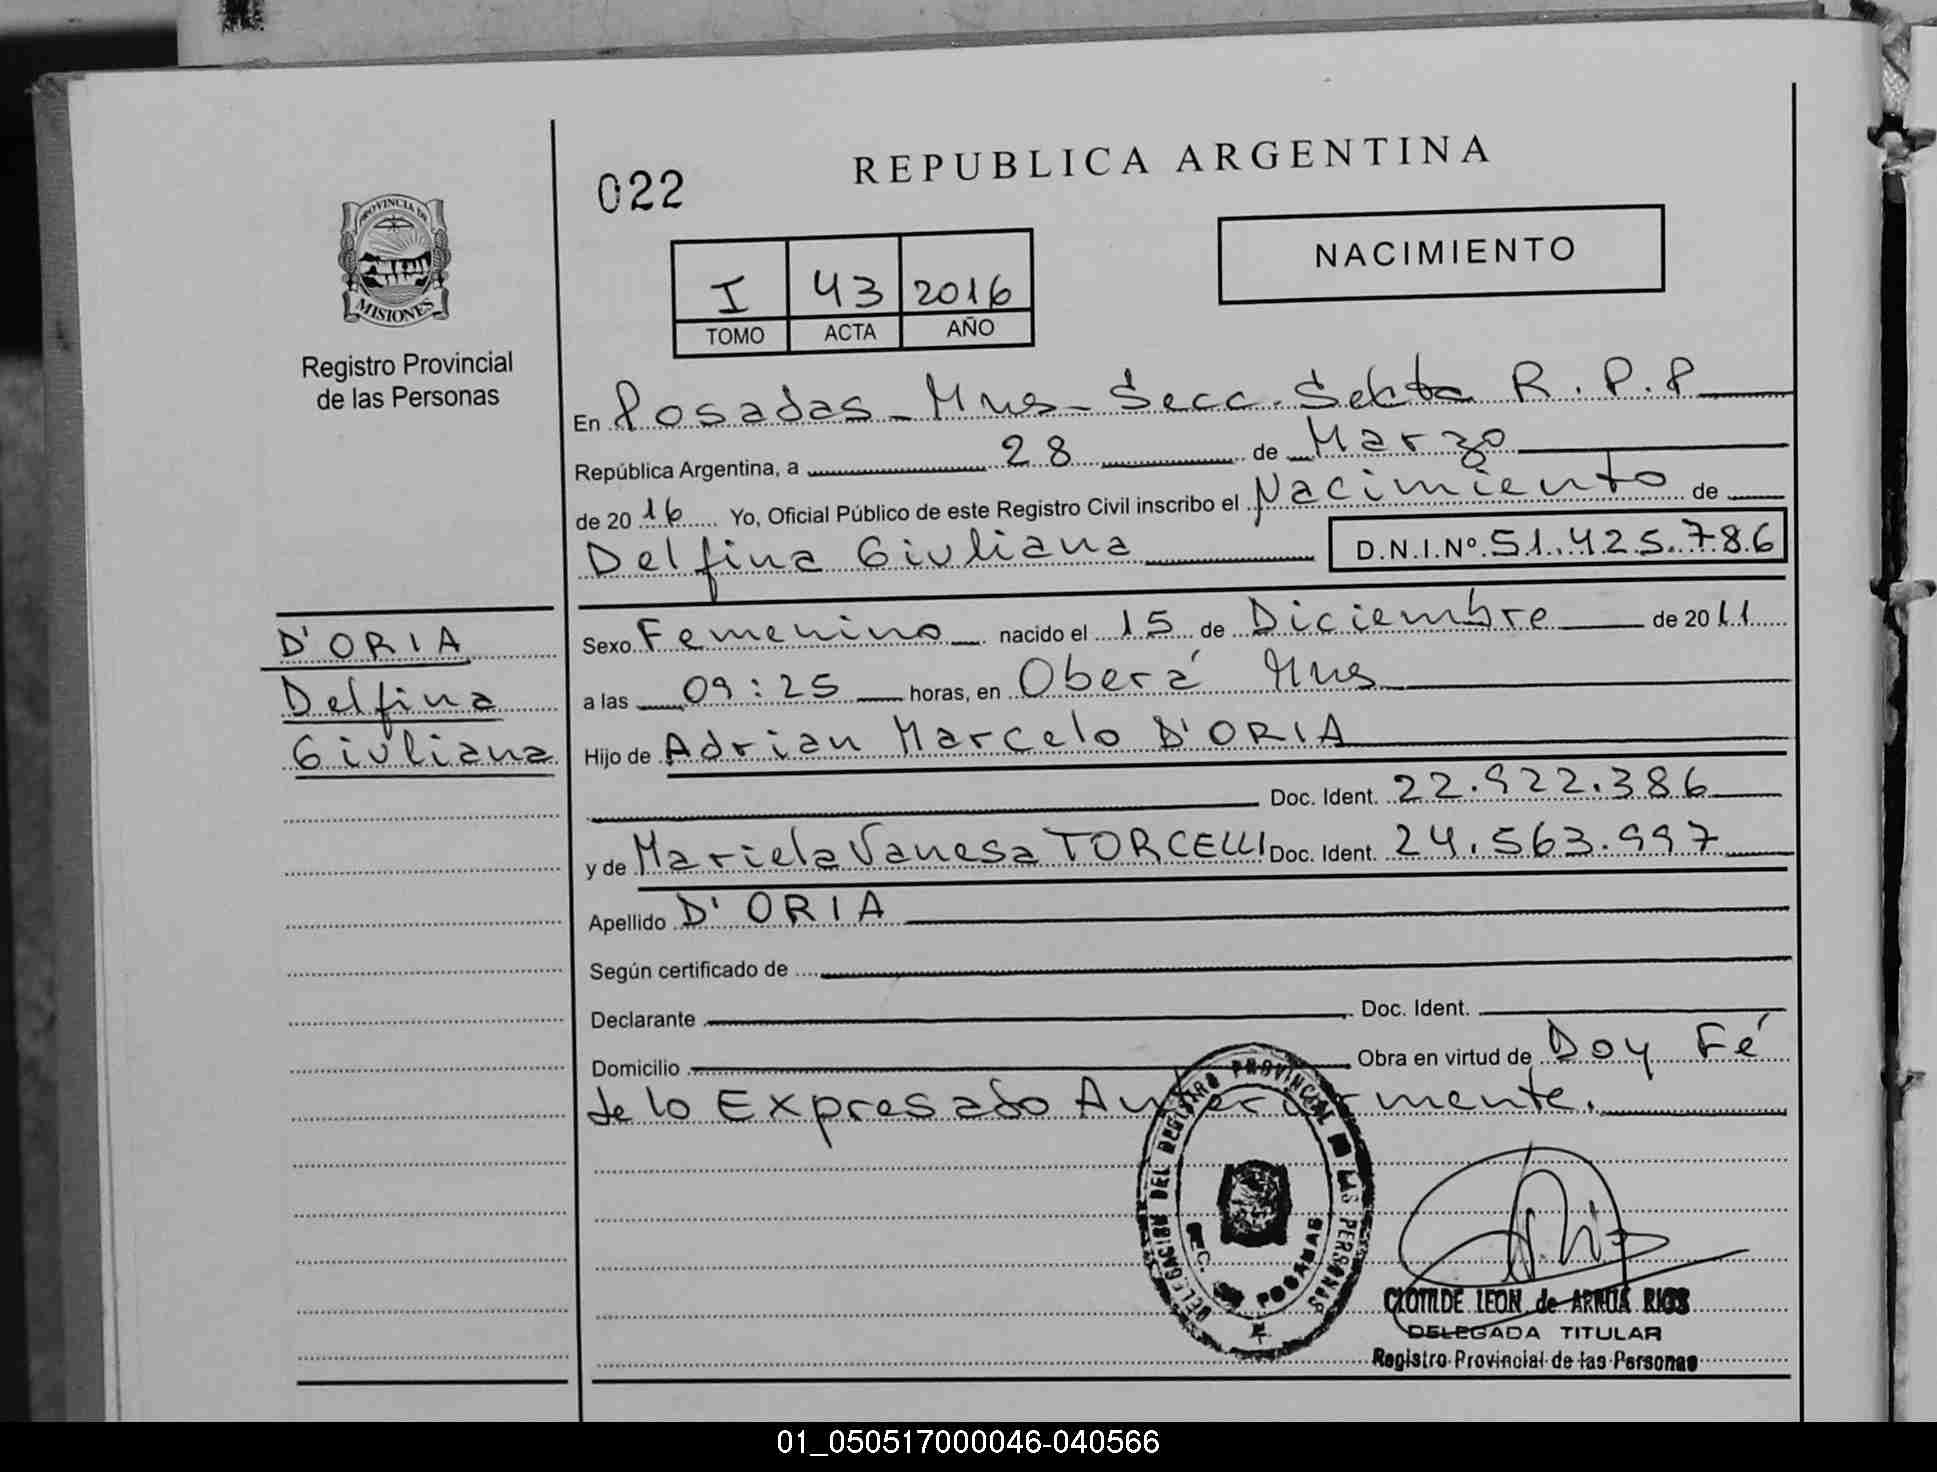 REPUBLICA ARGENTINA
022
NACIMIENTO
I 43 2016
TOMO ACTA AÑO
PROVINCIA DE
MISIONES
Registro Provincial
de las Personas
En Posadas - Mnes - Secc. Sekta R. P. P
República Argentina, a 28 de Marzo
de 2016 Yo, Oficial Público de este Registro Civil inscribo el Nacimiento de
Delfina Giuliana D.N.I.Nº 51.425.786
D'ORIA
Delfina
Giuliana
Sexo Femenino nacido el 15 de Diciembre de 2011
a las 09:25 horas, en Oberá Mnes
Hijo de Adrian Marcelo D'ORIA
Doc. Ident. 22.922.386
y de Mariela Vanesa TORCELLI Doc. Ident. 24.563.997
Apellido D'ORIA
Según certificado de
Declarante Doc. Ident.
Domicilio Obra en virtud de Doy Fé
de lo Expresado Anteriormente.
DELEGACION DEL REGISTRO PROVINCIAL DE LAS PERSONAS
SEC. POSADAS
CLOTILDE LEON de ARRUA RIOS
DELEGADA TITULAR
Registro Provincial de las Personas
01_050517000046-040566